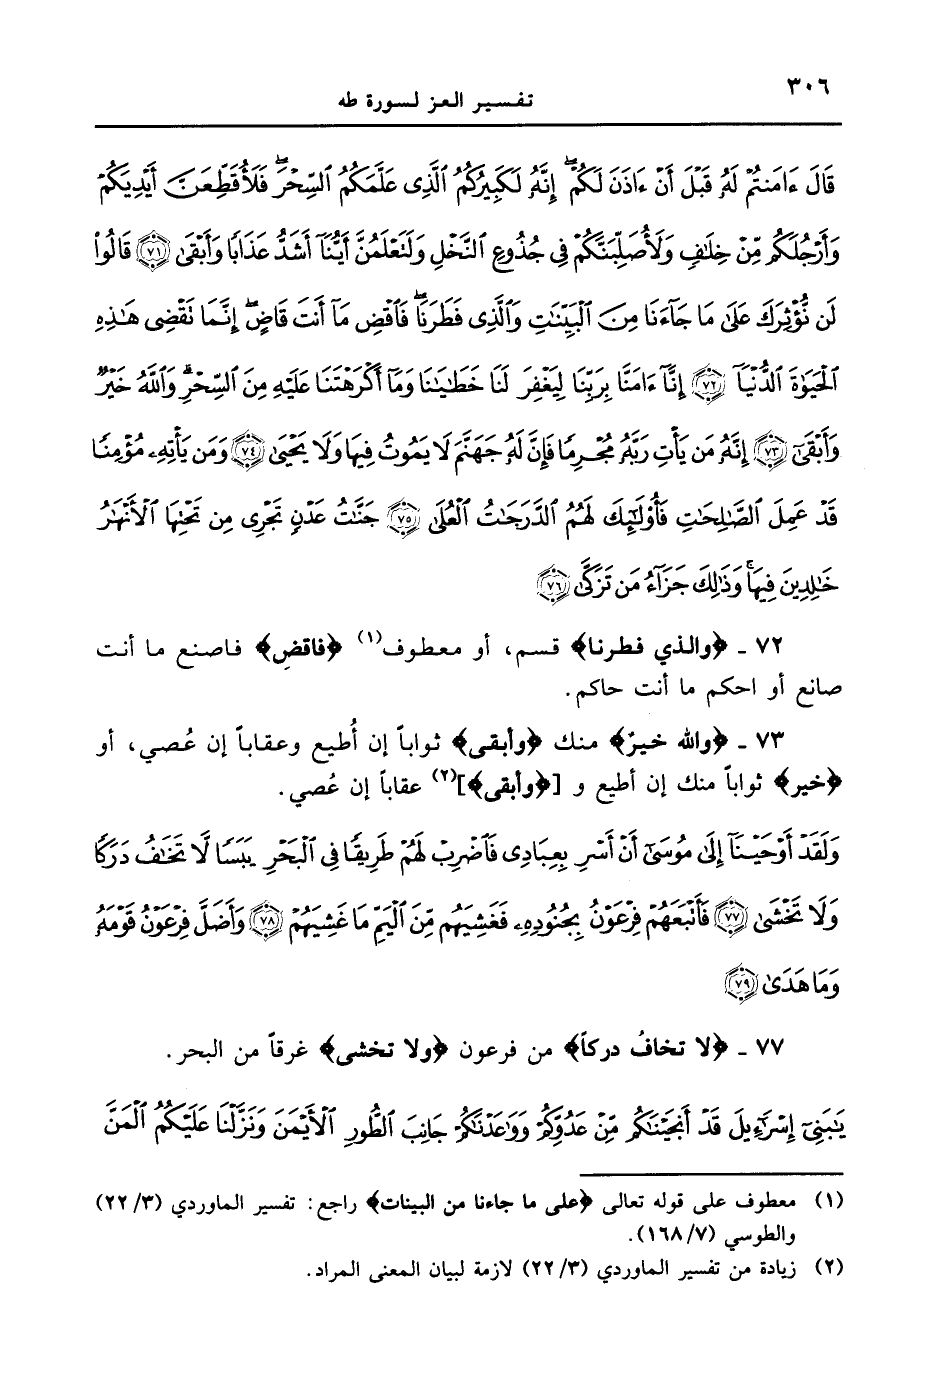 ٣٠٦
تفسير العز لسورة طه
قَالَ ءَامَنتُمْ لَهُۥ قَبْلَ أَنْ ءَاذَنَ لَكُمْ ۖ إِنَّهُۥ لَكَبِيرُكُمُ ٱلَّذِى عَلَّمَكُمُ ٱلسِّحْرَ ۖ فَلَأُقَطِّعَنَّ أَيْدِيَكُمْ
وَأَرْجُلَكُم مِّنْ خِلَٰفٍ وَلَأُصَلِّبَنَّكُمْ فِى جُذُوعِ ٱلنَّخْلِ وَلَتَعْلَمُنَّ أَيُّنَآ أَشَدُّ عَذَابًا وَأَبْقَىٰ ﴿٧١﴾ قَالُوا۟
لَن نُّؤْثِرَكَ عَلَىٰ مَا جَآءَنَا مِنَ ٱلْبَيِّنَٰتِ وَٱلَّذِى فَطَرَنَا ۖ فَٱقْضِ مَآ أَنتَ قَاضٍ ۖ إِنَّمَا تَقْضِى هَٰذِهِ
ٱلْحَيَوٰةَ ٱلدُّنْيَآ ﴿٧٢﴾ إِنَّآ ءَامَنَّا بِرَبِّنَا لِيَغْفِرَ لَنَا خَطَٰيَٰنَا وَمَآ أَكْرَهْتَنَا عَلَيْهِ مِنَ ٱلسِّحْرِ ۗ وَٱللَّهُ خَيْرٌ
وَأَبْقَىٰٓ ﴿٧٣﴾ إِنَّهُۥ مَن يَأْتِ رَبَّهُۥ مُجْرِمًا فَإِنَّ لَهُۥ جَهَنَّمَ لَا يَمُوتُ فِيهَا وَلَا يَحْيَىٰ ﴿٧٤﴾ وَمَن يَأْتِهِۦ مُؤْمِنًا
قَدْ عَمِلَ ٱلصَّٰلِحَٰتِ فَأُو۟لَٰٓئِكَ لَهُمُ ٱلدَّرَجَٰتُ ٱلْعُلَىٰ ﴿٧٥﴾ جَنَّٰتُ عَدْنٍ تَجْرِى مِن تَحْتِهَا ٱلْأَنْهَٰرُ
خَٰلِدِينَ فِيهَا ۚ وَذَٰلِكَ جَزَآءُ مَن تَزَكَّىٰ ﴿٧٦﴾
٧٢ ـ ﴿والذي فطرنا﴾ قسم، أو معطوف(١) ﴿فاقضِ﴾ فاصنع ما أنت
صانع أو احكم ما أنت حاكم.
٧٣ ـ ﴿والله خيرٌ﴾ منك ﴿وأبقى﴾ ثواباً إن أُطيع وعقاباً إن عُصي، أو
﴿خير﴾ ثواباً منك إن أطيع و [﴿وأبقى﴾](٢) عقاباً إن عُصي.
وَلَقَدْ أَوْحَيْنَآ إِلَىٰ مُوسَىٰٓ أَنْ أَسْرِ بِعِبَادِى فَٱضْرِبْ لَهُمْ طَرِيقًا فِى ٱلْبَحْرِ يَبَسًا لَّا تَخَٰفُ دَرَكًا
وَلَا تَخْشَىٰ ﴿٧٧﴾ فَأَتْبَعَهُمْ فِرْعَوْنُ بِجُنُودِهِۦ فَغَشِيَهُم مِّنَ ٱلْيَمِّ مَا غَشِيَهُمْ ﴿٧٨﴾ وَأَضَلَّ فِرْعَوْنُ قَوْمَهُۥ
وَمَا هَدَىٰ ﴿٧٩﴾
٧٧ ـ ﴿لا تخافُ دركاً﴾ من فرعون ﴿ولا تخشى﴾ غرقاً من البحر.
يَٰبَنِىٓ إِسْرَٰٓءِيلَ قَدْ أَنجَيْنَٰكُم مِّنْ عَدُوِّكُمْ وَوَٰعَدْنَٰكُمْ جَانِبَ ٱلطُّورِ ٱلْأَيْمَنَ وَنَزَّلْنَا عَلَيْكُمُ ٱلْمَنَّ
(١) معطوف على قوله تعالى ﴿على ما جاءنا من البينات﴾ راجع: تفسير الماوردي (٢٢/٣)
والطوسي (١٦٨/٧).
(٢) زيادة من تفسير الماوردي (٢٢/٣) لازمة لبيان المعنى المراد.